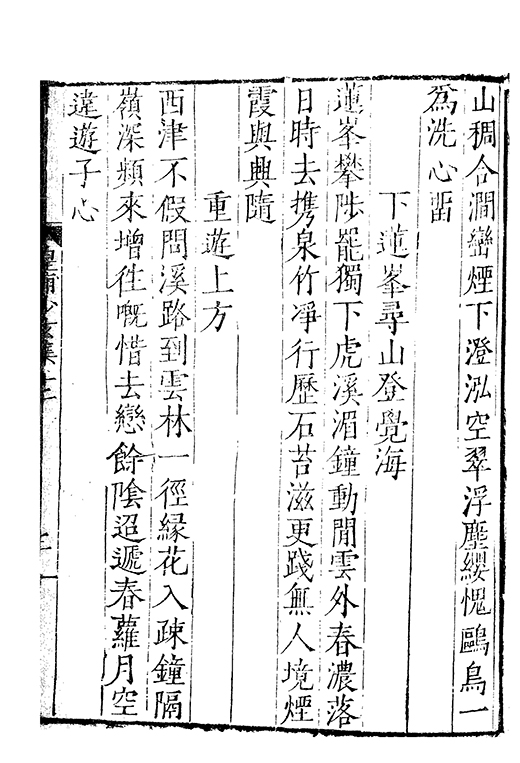 山稠合澗巒煙下澄泓空翠浮塵纓愧鷗鳥一
爲洗心畱
下蓮峯尋山登覺海
蓮峯攀陟罷獨下虎溪湄鐘動閒雲外春濃落
日時去攜泉竹凈行歷石苔滋更踐無人境煙
霞與興隨
重遊上方
西津不假問溪路到雲林一徑緣花入疎鐘隔
嶺深頻來增徃嘅惜去戀餘陰迢遞春蘿月空
違遊子心